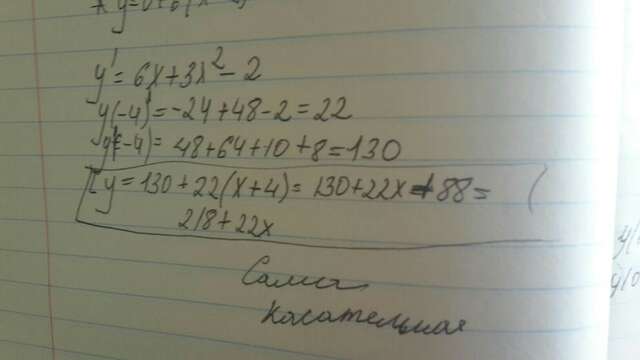 y' = 6x + 3x² - 2
y'(-4) = -24 + 48 - 2 = 22
y(-4) = 48 + 64 + 10 + 8 = 130
y = 130 + 22(x+4) = 130 + 22x + 88 =
218 + 22x
Сама
касательная